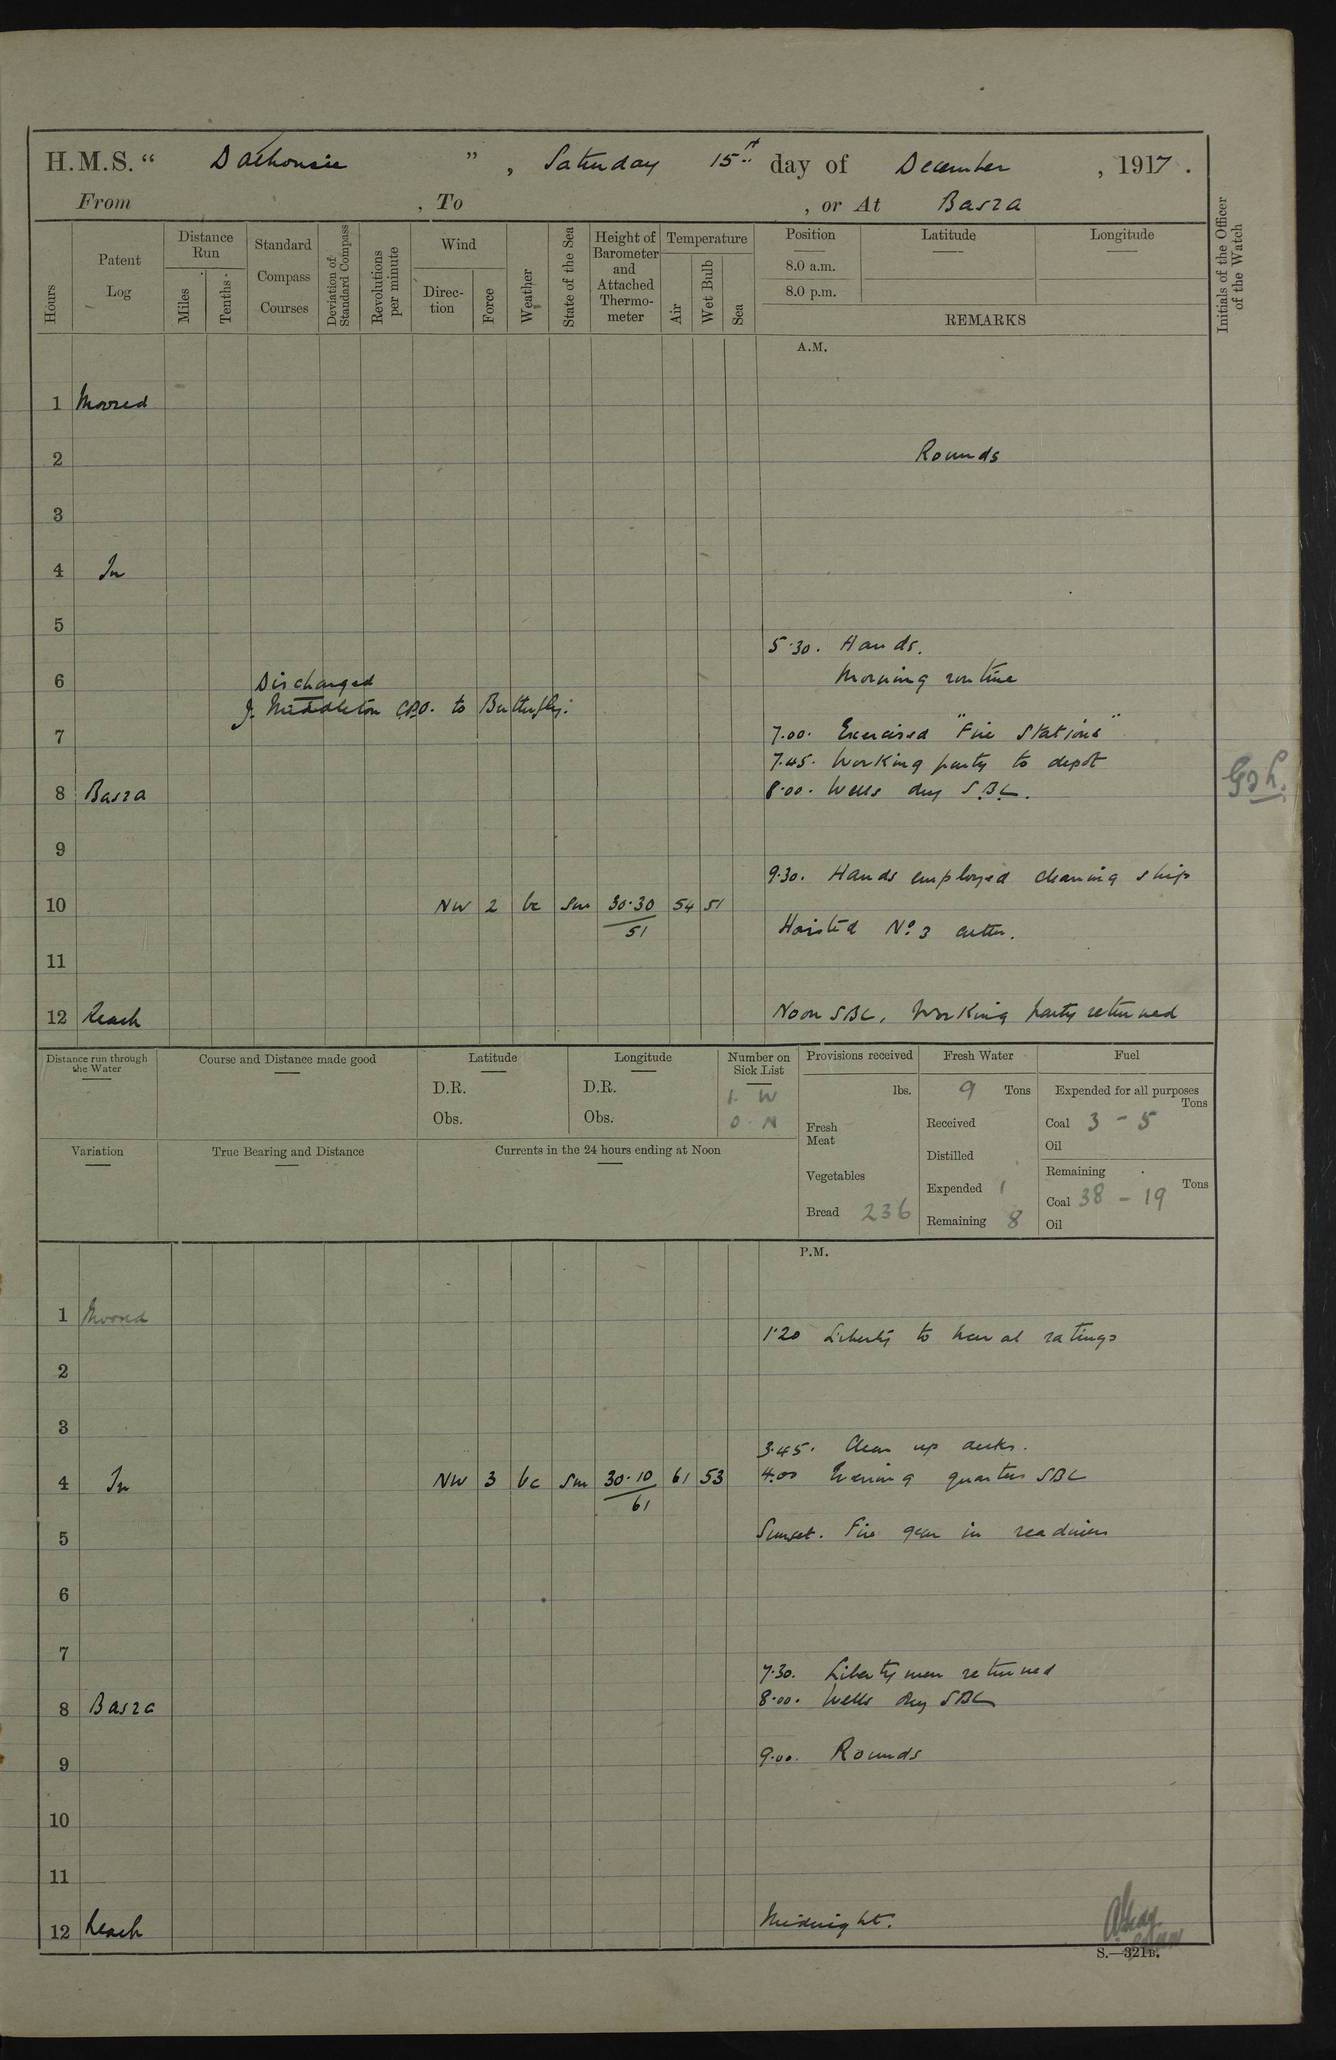 H.M.S. “ Dalhousie ” , Saturday 15th day of December , 1917 .
From , To , or At Basra
Hours
Patent Log
Distance Run
Miles
Tenths
Standard Compass Courses
Deviation of Standard Compass
Revolutions per minute
Wind
Direction
Force
Weather
State of the Sea
Height of Barometer and Attached Thermometer
Temperature
Air
Wet Bulb
Sea
Position
8.0 a.m.
8.0 p.m.
Latitude
Longitude
REMARKS
Initials of the Officer of the Watch
A.M.
1 Moored
2 Rounds
3
4 In
5
5.30. Hands.
6 Discharged Morning routine
J. Middleton C.P.O. to Butterfly.
7 7.00. Exercised "Fire Stations"
7.45. Working party to depot
8 Basra 8.00. Wells dry S.B.C.
9
9.30. Hands employed cleaning ship
10 NW 2 bc Sm 30.30 54 51
51 Hoisted No. 3 cutter.
11
12 Reach Noon SBC, Working party returned
Distance run through the Water
Course and Distance made good
Latitude
D.R.
Obs.
Longitude
D.R.
Obs.
Number on Sick List
1. W
0. N
Provisions received
lbs.
Fresh Meat
Vegetables
Bread 236
Fresh Water
9 Tons
Received
Distilled
Expended 1
Remaining 8
Fuel
Expended for all purposes
Tons
Coal 3 - 5
Oil
Remaining
Tons
Coal 38 - 19
Oil
Variation
True Bearing and Distance
Currents in the 24 hours ending at Noon
P.M.
1 Moored
1.20 Liberty to naval ratings
2
3
3.45. Clear up decks.
4 In NW 3 bc Sm 30.10 61 53 4.00 Evening quarters SBC
61
5 Sunset. Fire gear in readiness
6
7
7.30. Liberty men returned
8 Basra 8.00. Wells dry SBC
9 9.00. Rounds
10
11
12 Reach Midnight.
S.—321B.